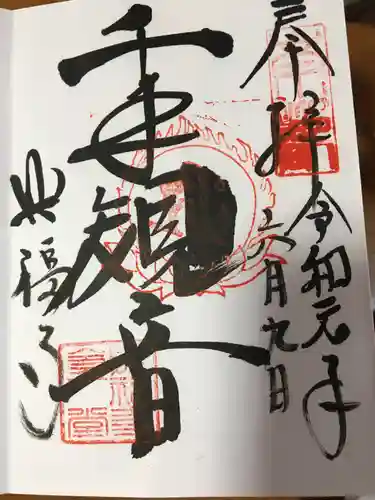 奉拝
令和元年
六月九日
千手観音
興福寺